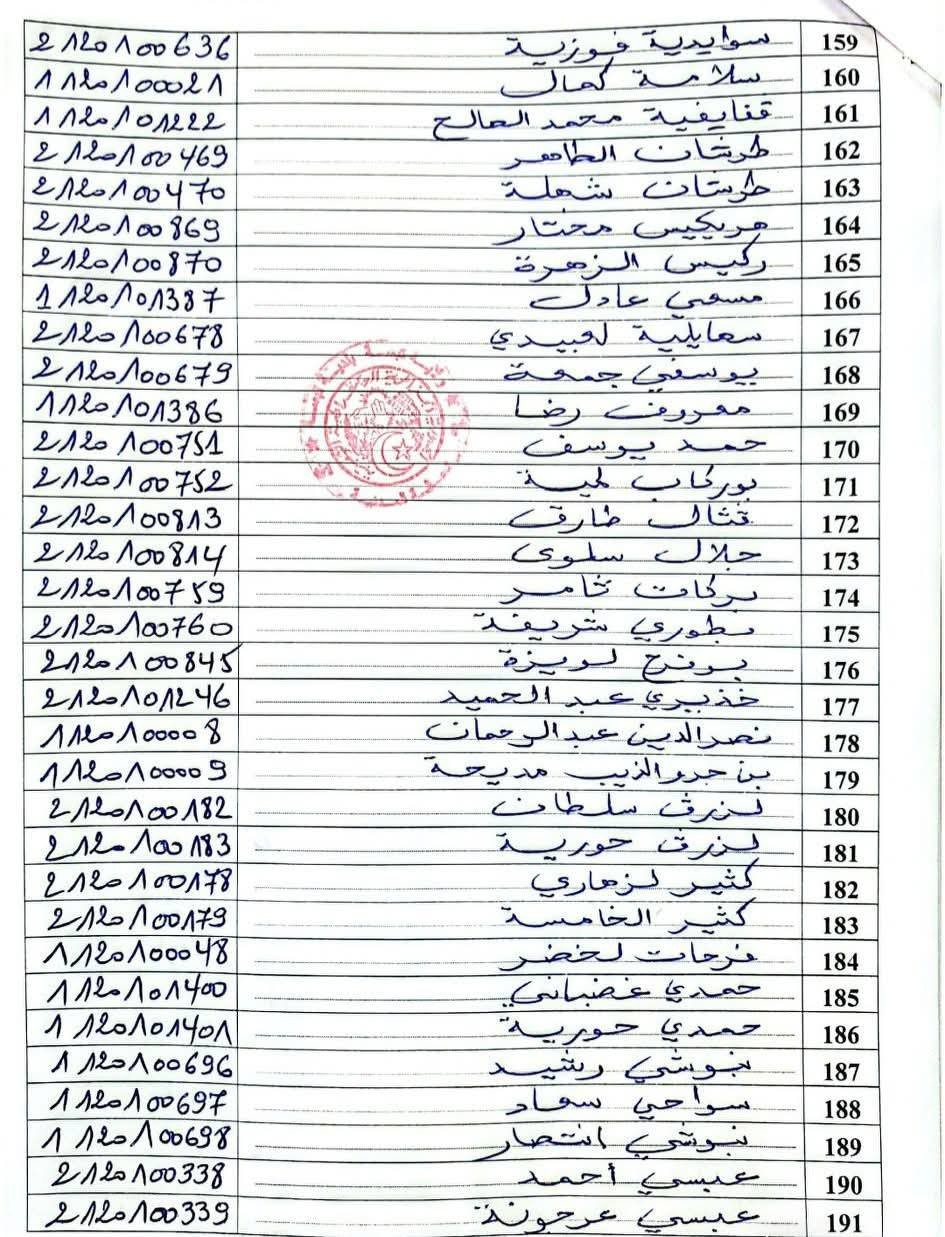 159 سوايدية فوزية 2120100636
160 سلامة كمال 1120100021
161 قنايفية محمد الصالح 1120101222
162 طرشان الطاهر 2120100469
163 طرشان شهلة 2120100470
164 هريكيس مختار 2120100869
165 ركيس الزهرة 2120100870
166 مسعي عادل 1120101387
167 سمايلية لعبيدي 2120100678
168 يوسفي جمعة 2120100679
169 معروف رضا 1120101386
170 حمد يوسف 2120100751
171 بوركاب لمية 2120100752
172 قتال طارق 2120100813
173 جلال سلوى 2120100814
174 بركات تامر 2120100759
175 بطوري شريفة 2120100760
176 بوفرح لويزة 2120100845
177 خذيري عبد الحميد 2120101246
178 نصر الدين عبد الرحمان 112010008
179 بن جدو الذيب مديحة 112010009
180 لزرق سلطان 2120100182
181 لزرق حورية 2120100183
182 كثير لزهاري 2120100178
183 كثير الخامسة 2120100179
184 فرحات لخضر 1120100048
185 حمدي غضباني 1120101400
186 حمدي حورية 1120101401
187 نبوشي رشيد 1120100696
188 سواحي سعاد 1120100697
189 نبوشي انتصار 1120100698
190 عبسي أحمد 2120100338
191 عبسي عرجونة 2120100339